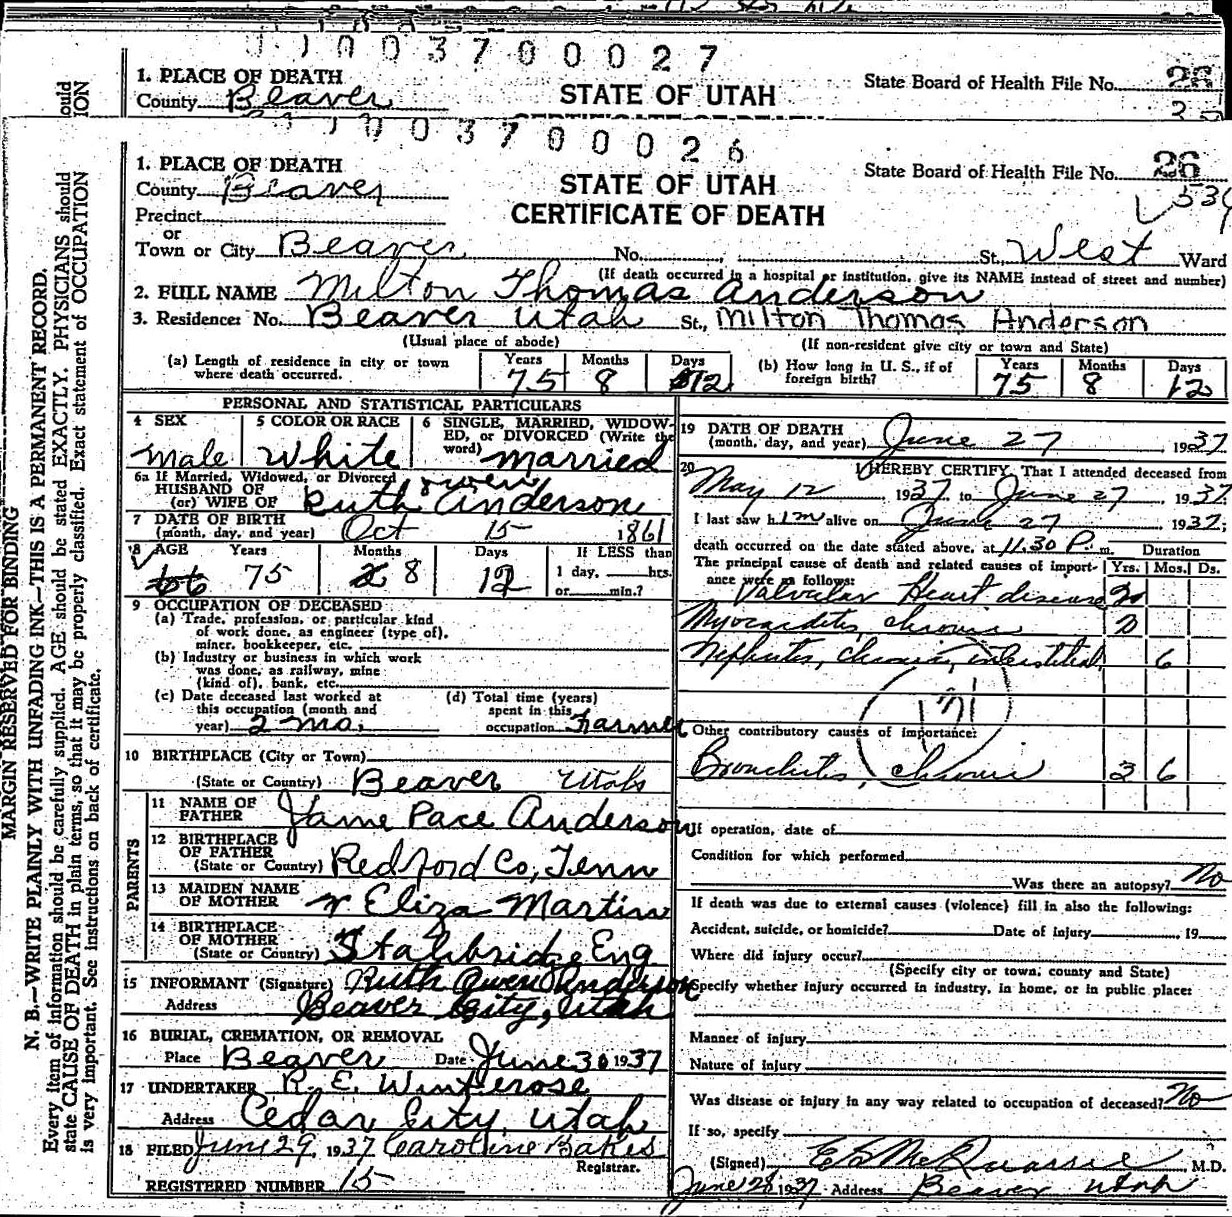 0 0 3 7 0 0 0 2 7
1. PLACE OF DEATH
County Beaver
STATE OF UTAH
State Board of Health File No.
0 0 3 7 0 0 0 2 6
1. PLACE OF DEATH
County Beaver
STATE OF UTAH
CERTIFICATE OF DEATH
State Board of Health File No. 26
Precinct
or
Town or City Beaver No. St., West Ward
(If death occurred in a hospital or institution, give its NAME instead of street and number)
2. FULL NAME Milton Thomas Anderson
3. Residence: No. Beaver Utah St., Milton Thomas Anderson
(Usual place of abode) (If non-resident give city or town and State)
(a) Length of residence in city or town where death occurred. Years 75 Months 8 Days 12
(b) How long in U. S., if of foreign birth? Years 75 Months 8 Days 12
PERSONAL AND STATISTICAL PARTICULARS
4 SEX Male
5 COLOR OR RACE White
6 SINGLE, MARRIED, WIDOWED, or DIVORCED (Write the word) Married
6a If Married, Widowed, or Divorced
HUSBAND OF
(or) WIFE OF Ruth Owen Anderson
7 DATE OF BIRTH
(month, day, and year) Oct 15 1861
8 AGE Years 75 Months 8 Days 12
If LESS than
1 day, hrs.
or min.?
9 OCCUPATION OF DECEASED
(a) Trade, profession, or particular kind
of work done, as engineer (type of),
miner, bookkeeper, etc.
(b) Industry or business in which work
was done, as railway, mine
(kind of), bank, etc.
(c) Date deceased last worked at
this occupation (month and
year) 2 mo.
(d) Total time (years)
spent in this
occupation Farmer
10 BIRTHPLACE (City or Town)
(State or Country) Beaver Utah
PARENTS
11 NAME OF
FATHER Jame Pace Anderson
12 BIRTHPLACE
OF FATHER
(State or Country) Redford Co, Tenn
13 MAIDEN NAME
OF MOTHER Eliza Martin
14 BIRTHPLACE
OF MOTHER
(State or Country) Stalbridge Eng
15 INFORMANT (Signature) Ruth Owen Anderson
Address Beaver City, Utah
16 BURIAL, CREMATION, OR REMOVAL
Place Beaver Date June 30 1937
17 UNDERTAKER R. E. Winterose
Address Cedar City, Utah
18 FILED June 29, 1937 Caroline Bakes
Registrar.
REGISTERED NUMBER 15
19 DATE OF DEATH
(month, day, and year) June 27 1937
20 I HEREBY CERTIFY, That I attended deceased from
May 12, 1937, to June 27, 1937.
I last saw him alive on June 27 1937;
death occurred on the date stated above, at 11.30 P. m.
Duration
The principal cause of death and related causes of importance were as follows: Yrs. Mos. Ds.
Valvular Heart disease
Myocarditis, chronic
Nephritis, chronic, interstitial 6
Other contributory causes of importance:
Bronchitis, chronic 6
If operation, date of
Condition for which performed
Was there an autopsy? No
If death was due to external causes (violence) fill in also the following:
Accident, suicide, or homicide? Date of injury 19
Where did injury occur?
(Specify city or town, county and State)
Specify whether injury occurred in industry, in home, or in public place:
Manner of injury
Nature of injury
Was disease or injury in any way related to occupation of deceased? No
If so, specify
(Signed) , M.D.
June 28 1937 Address Beaver Utah
MARGIN RESERVED FOR BINDING
N. B.—WRITE PLAINLY WITH UNFADING INK—THIS IS A PERMANENT RECORD.
Every item of information should be carefully supplied. AGE should be stated EXACTLY. PHYSICIANS should
state CAUSE OF DEATH in plain terms, so that it may be properly classified. Exact statement of OCCUPATION
is very important. See instructions on back of certificate.